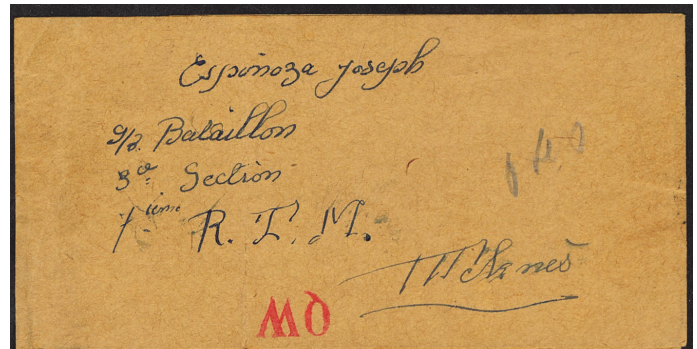 Espinoza Joseph
9/2. Bataillon
3e Section
7ième R. T. M.
MQ